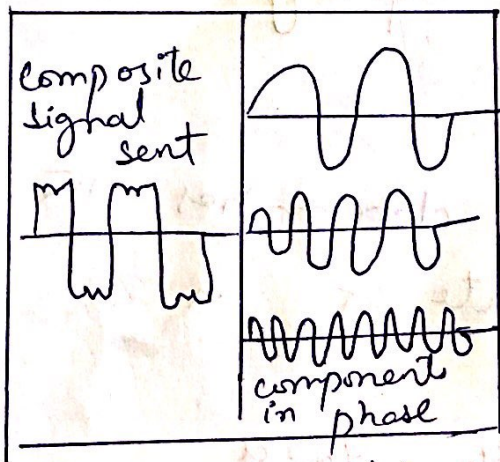 composite
signal
sent
component
in phase